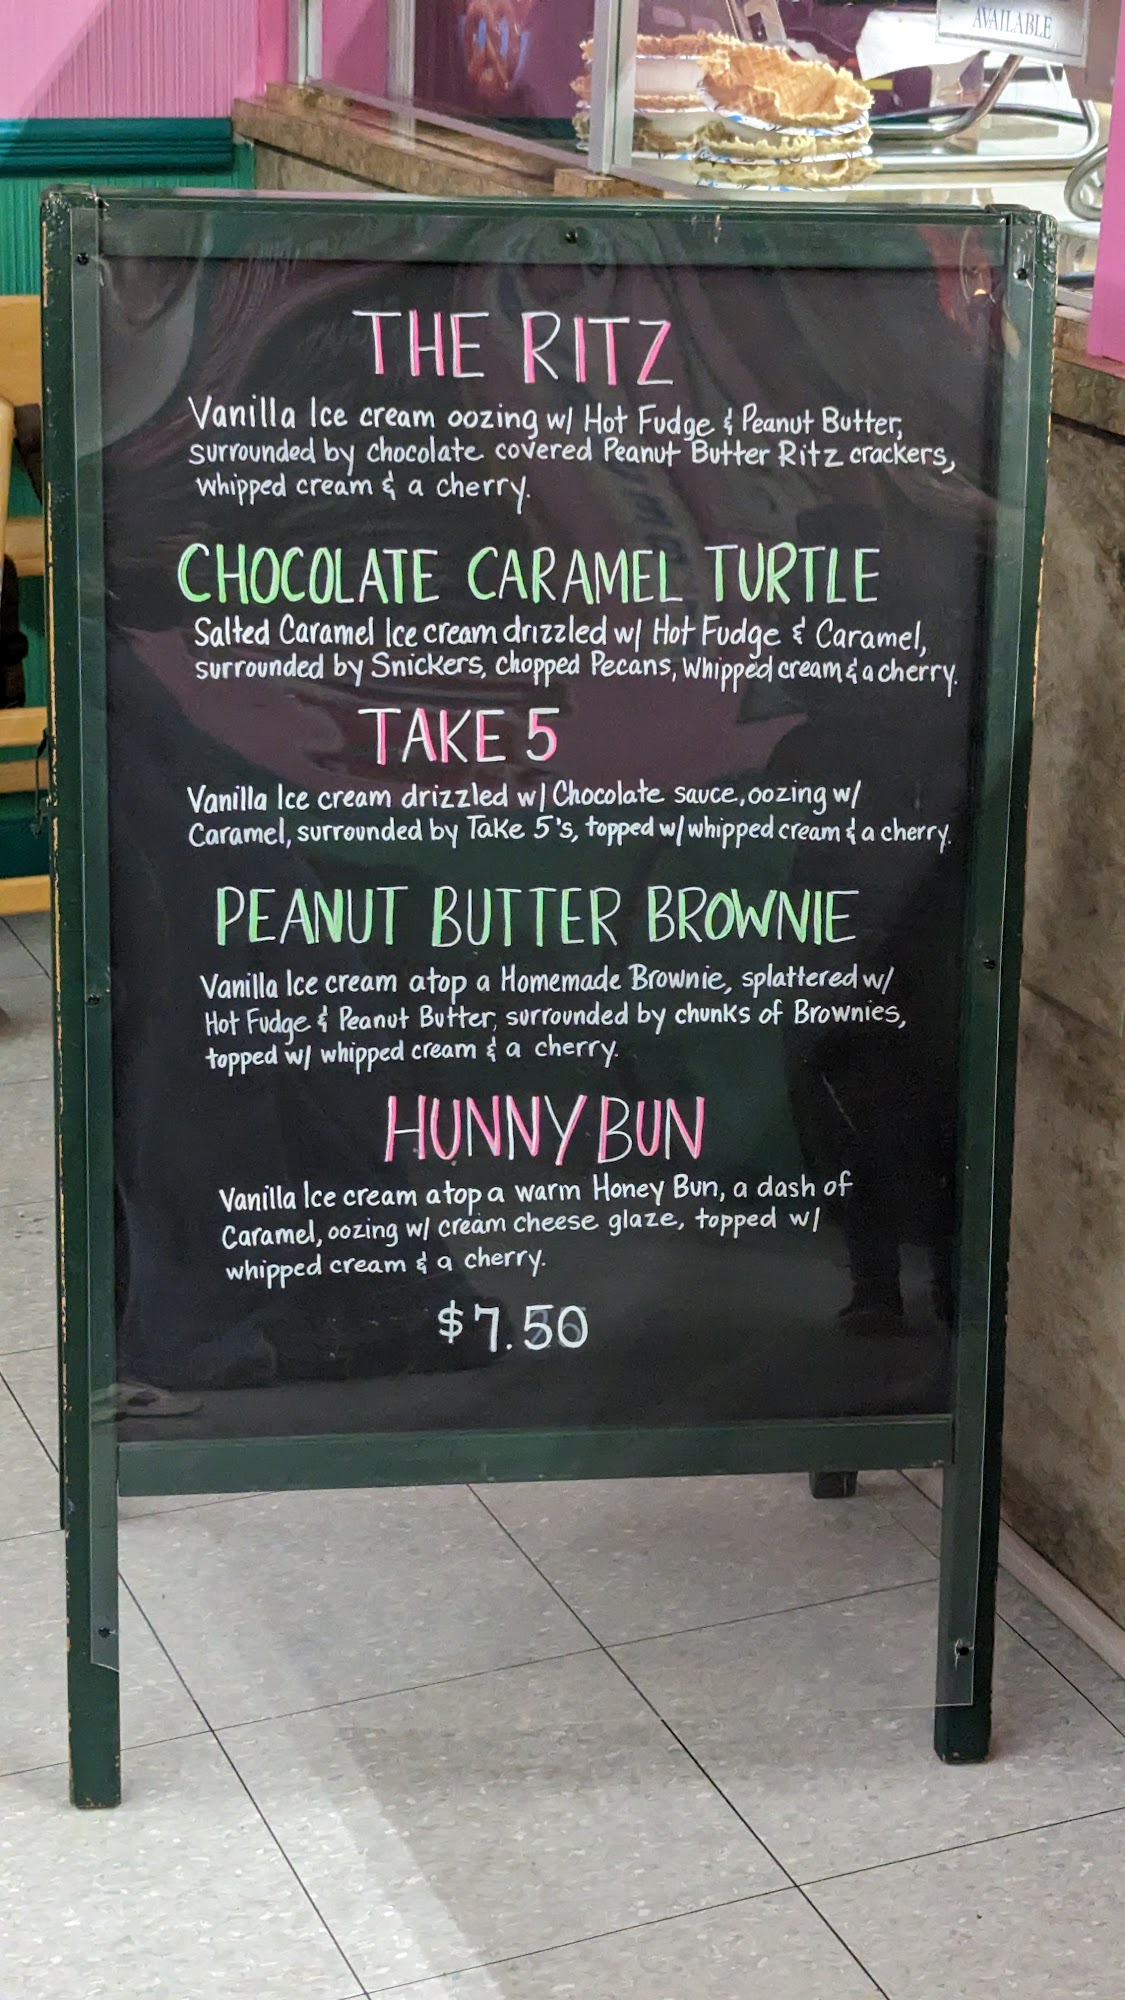 AVAILABLE
THE RITZ
Vanilla Ice cream oozing w/ Hot Fudge & Peanut Butter,
surrounded by chocolate covered Peanut Butter Ritz crackers,
whipped cream & a cherry.
CHOCOLATE CARAMEL TURTLE
Salted Caramel Ice cream drizzled w/ Hot Fudge & Caramel,
surrounded by Snickers, chopped Pecans, Whipped cream & a cherry.
TAKE 5
Vanilla Ice cream drizzled w/ Chocolate sauce, oozing w/
Caramel, surrounded by Take 5's, topped w/ whipped cream & a cherry.
PEANUT BUTTER BROWNIE
Vanilla Ice cream atop a Homemade Brownie, splattered w/
Hot Fudge & Peanut Butter, surrounded by chunks of Brownies,
topped w/ whipped cream & a cherry.
HUNNY BUN
Vanilla Ice cream atop a warm Honey Bun, a dash of
Caramel, oozing w/ cream cheese glaze, topped w/
whipped cream & a cherry.
$7.50